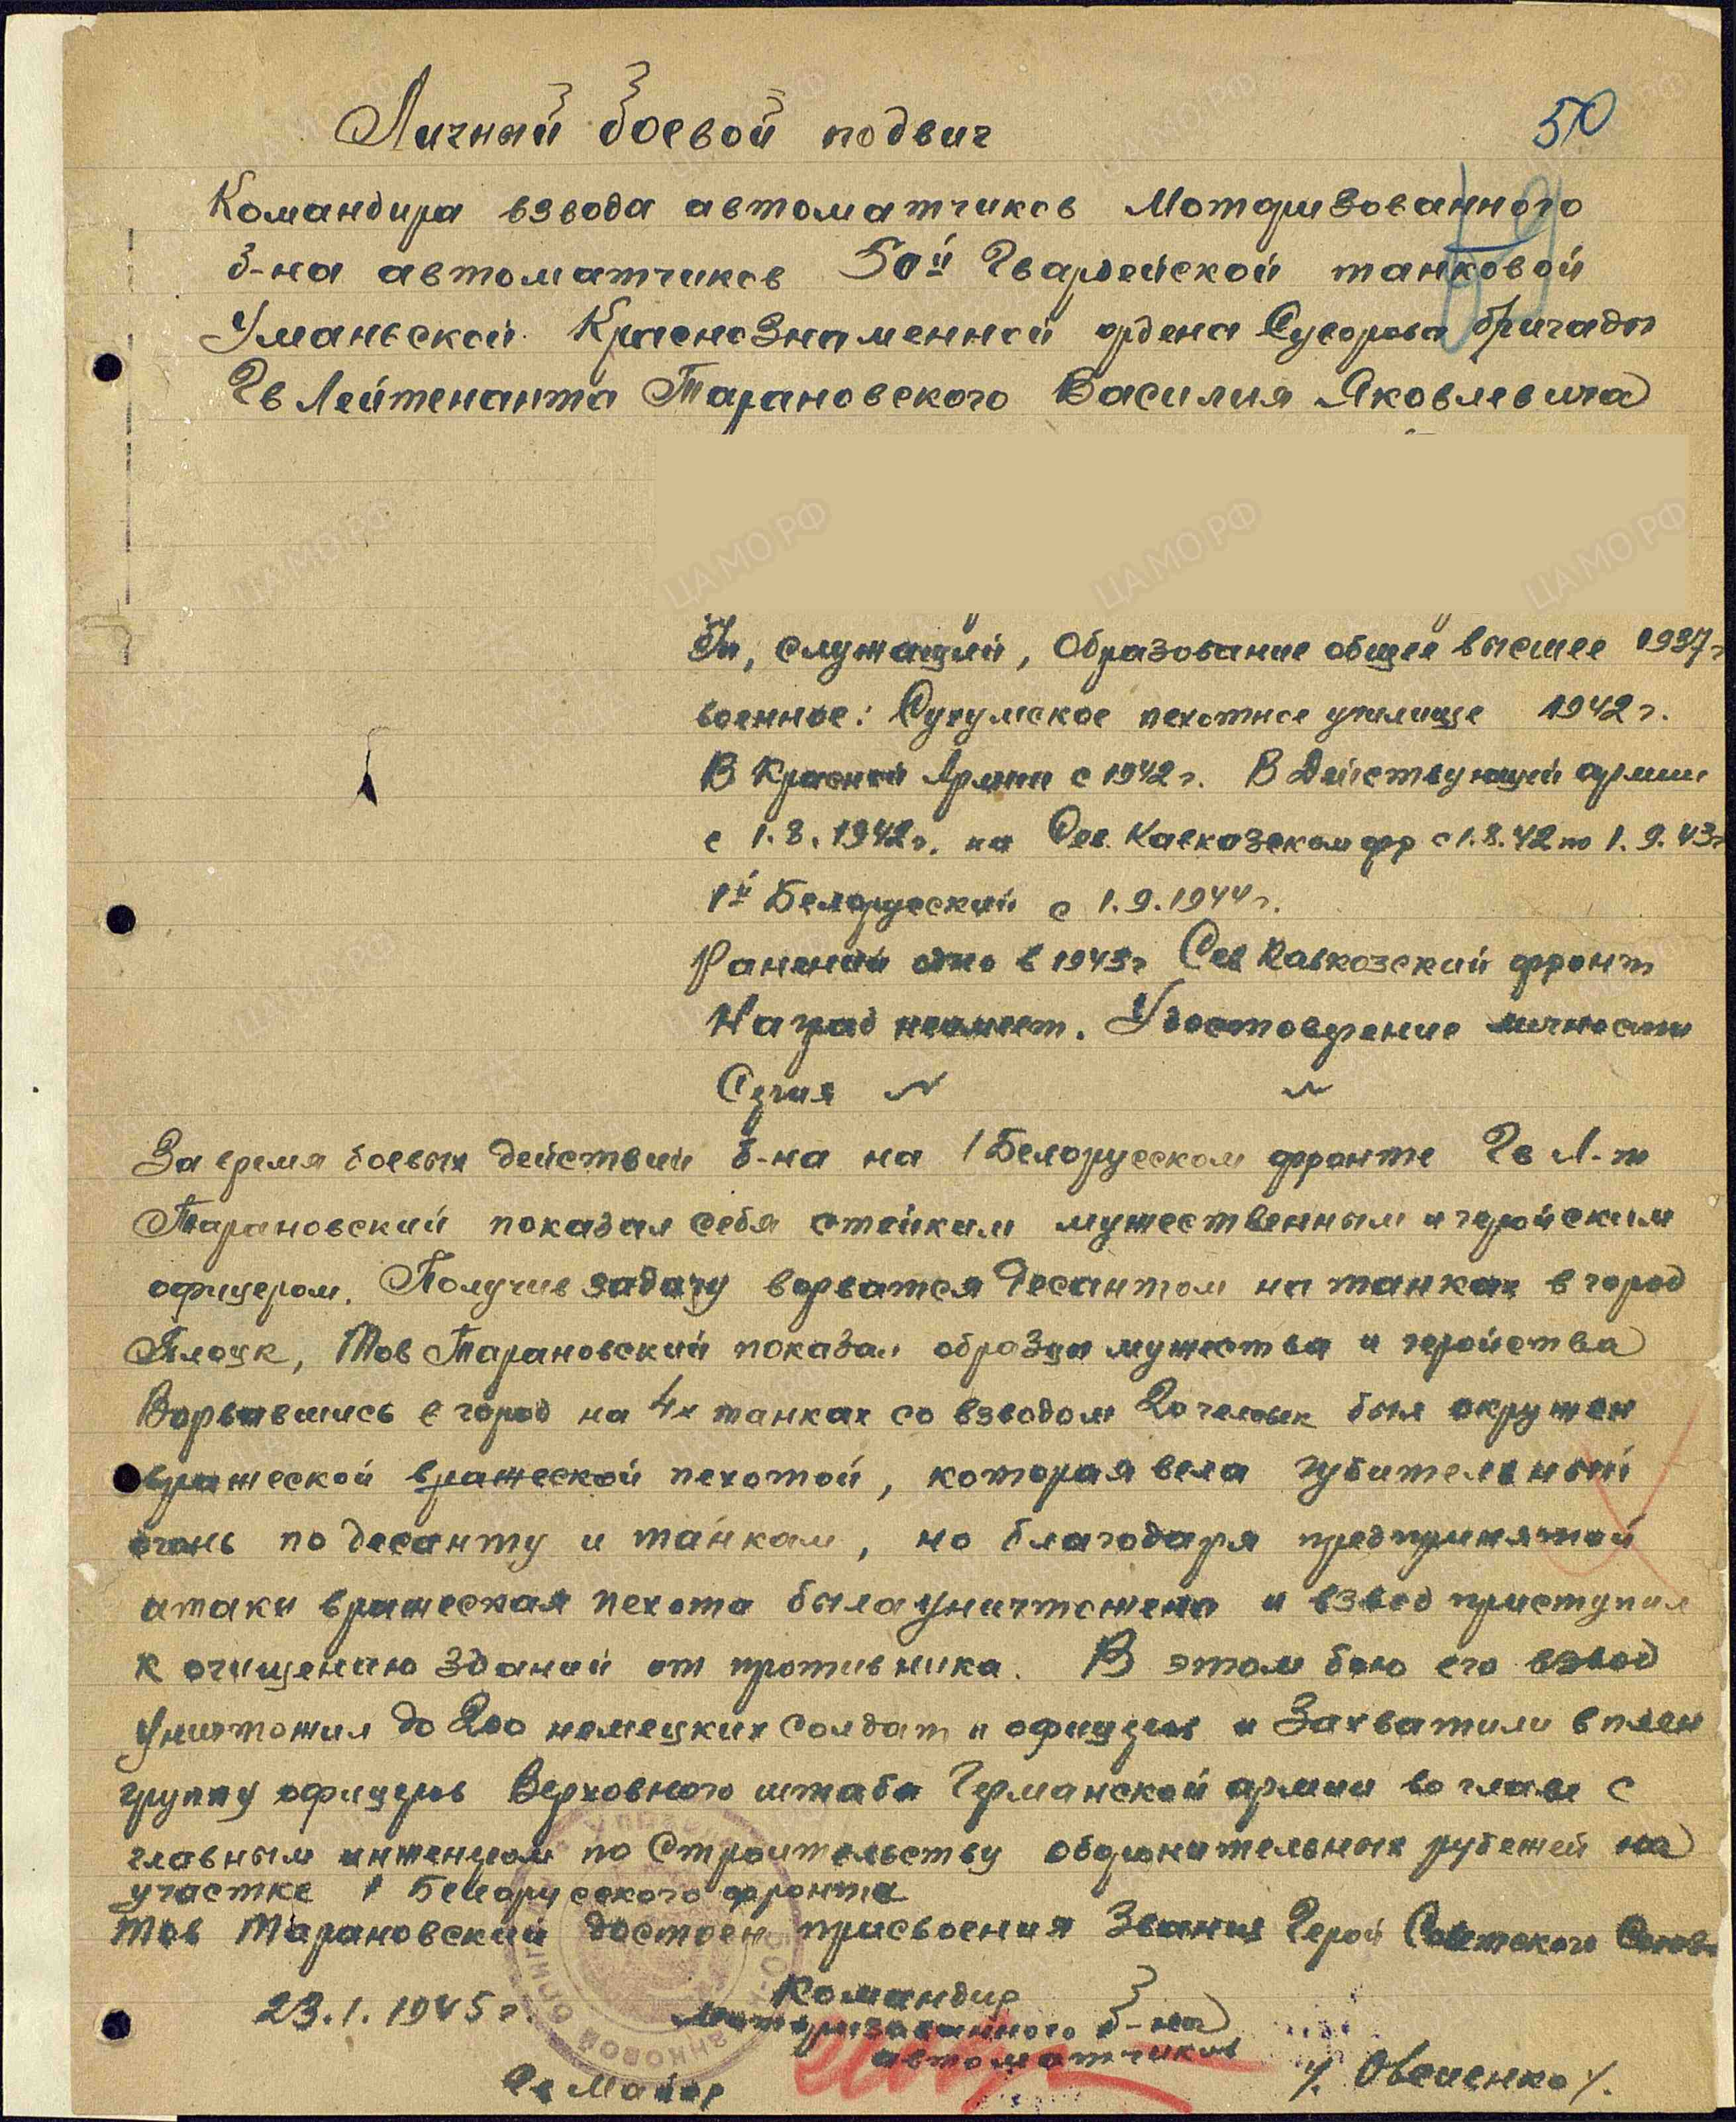 50
Личный боевой подвиг
Командира взвода автоматчиков Моторизованного
б-на автоматчиков 50й Гвардейской танковой
Уманьской Краснознаменной ордена Суворова бригады
Гв Лейтенанта Тарановского Василия Яковлевича
служащий, Образование общее высшее 1937г
военное: Сухумское пехотное училище 1942 г.
В Красной Армии с 1942 г. В Действующей армии
с 1.8.1942г. на Сев. Кавказском фр с 1.8.42 по 1.9.43г
1й Белорусский с 1.9.1944 г.
Ранений одно в 1943г Сев Кавказский фронт
Наград неимеет. Удостоверение личности
Серия N
За время боевых действий б-на на 1 Белорусском фронте Гв Л-т
Тарановский показал себя стойким мужественным и геройским
офицером. Получив задачу ворватся десантом на танках в город
Плоцк, Тов Тарановский показал образцы мужества и геройства
Ворвавшись в город на 4х танках со взводом 20 человек был окружен
вражеской вражеской пехотой, которая вела губительный
огонь по десанту и танкам, но благодаря предпринятой
атаки вражеская пехота была уничтожена и взвод приступил
к очищению зданий от противника. В этом бою его взвод
Уничтожил до 200 немецких солдат и офицеров и Захватили в плен
группу офицеров Верховного штаба Германской армии во главе с
главным инженером по Строительству оборонительных рубежей на
участке 1 Белорусского фронта
Тов Тарановский достоен присвоения Звания Герой Советского Союза
23.1.1945 г.
Командир
Моторизованного б-на
автоматчиков
Гв Майор
/. Овсиенко /.